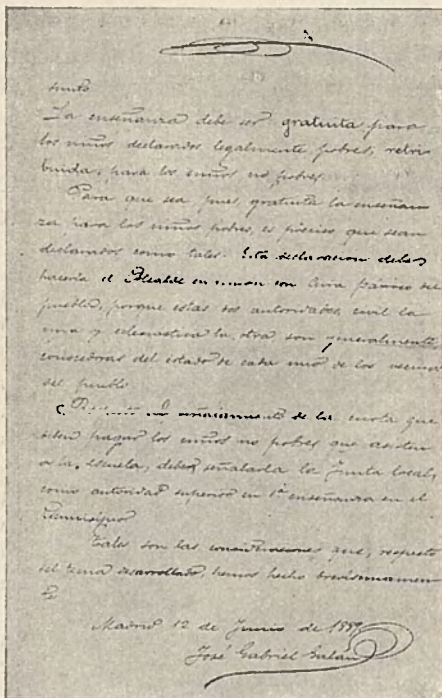 sunto
La enseñanza debe ser gratuita para
los niños declarados legalmente pobres, retri-
buida, para los niños no pobres.
Para que sea pues, gratuita la enseñan
za para los niños pobres, es preciso que sean
declarados como tales. Esta declaracion deben
hacerla el Alcalde en union con Cura párroco del
pueblo, porque estas dos autoridades, civil la
una y eclesiastica la otra son generalmente
conocedoras del estado de cada uno de los vecinos
del pueblo
Respecto al señalamiento de la cuota que
deben pagar los niños no pobres que asisten
a la escuela, debe señalarla la Junta local,
como autoridad superior en 1ª enseñanza en el
municipio
Tales son las consideraciones que, respecto
del tema desarrollado, hemos hecho brevisimamen
te
Madrid 12 de Junio de
José Gabriel Galán